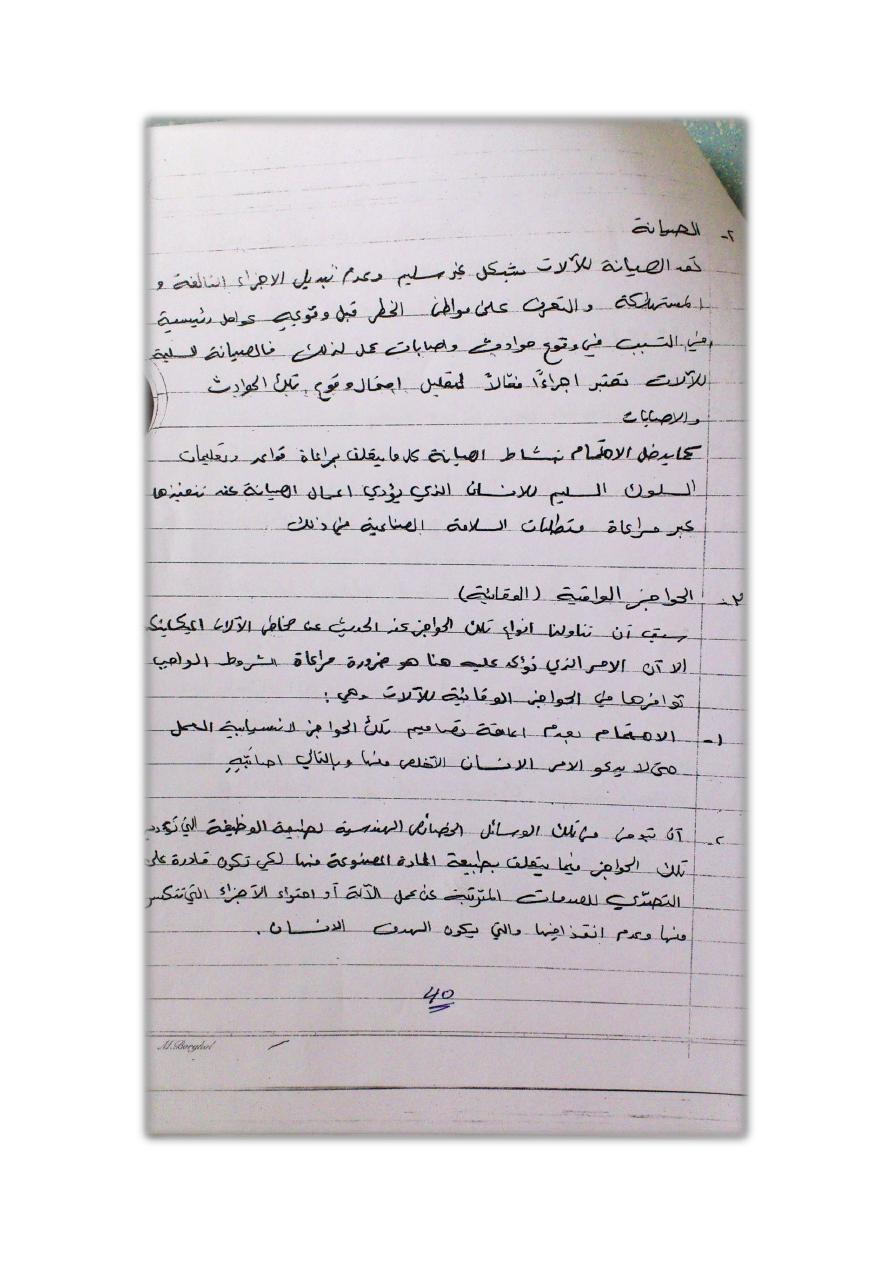 ٢- الصيانة
تعد الصيانة للآلات بشكل غير سليم وعدم تبديل الاجزاء التالفة و
المستهلكة والتعرف على مواطن الخطر قبل وقوعه عوامل رئيسية
في التسبب في وقوع حوادث واصابات عمل لذلك فالصيانة السليمة
للآلات تعتبر اجراءًا فعّالاً لتقليل احتمال وقوع تلك الحوادث
والاصابات
كما يدخل الاهتمام بنشاط الصيانة كل ما يتعلق بمراعاة قواعد وتعليمات
السلوك السليم للانسان الذي يؤدي اعمال الصيانة عند تنفيذها
عبر مراعاة متطلبات السلامة الصناعية في ذلك
٣- الحواجز الواقية (الوقائية)
سبق أن تناولنا انواع تلك الحواجز عند الحديث عن مخاطر الآلات الميكانيكية
الا أن الامر الذي نؤكد عليه هنا هو ضرورة مراعاة الشروط الواجب
توافرها في الحواجز الوقائية للآلات وهي :
١- الاهتمام بعدم اعاقة تصاميم تلك الحواجز لانسيابية العمل
حتى لا يدعو الامر الانسان التخلص منها وبالتالي اصابته
٢- أن من تلك الوسائل الخصائص الهندسية لطبيعة الوظيفة التي
تلك الحواجز فيما يتعلق بطبيعة المادة المصنوعة منها لكي تكون قادرة على
التصدّي للصدمات المترتبة عن عمل الآلة أو احتواء الأجزاء التي تنكسر
منها وعدم والتي يكون الهدف الانسان .
40
M.Borghol